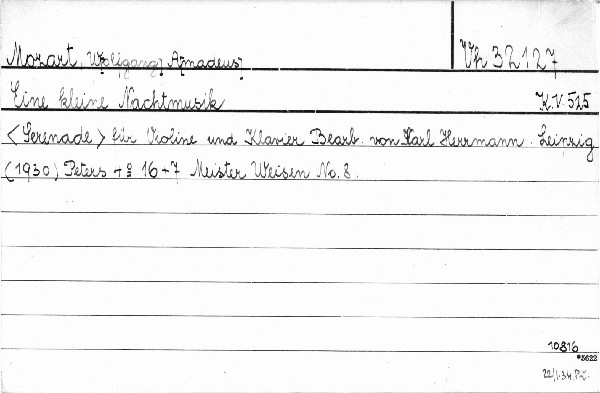 Mozart, W[olfgang] A[madeus]
Vh 32127
Eine kleine Nachtmusik K.V. 525
<Serenade> für Violine und Klavier Bearb. von Karl Herrmann. Leipzig
(1930) Peters 4° 16+7 Meister Weisen No. 8.
10816
*3622